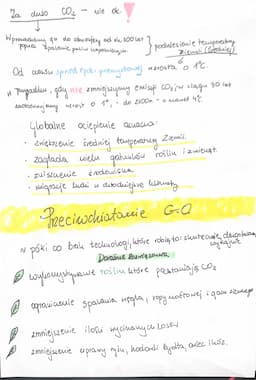 Za dużo CO₂ - nie ok!
Wprowadzamy go do atmosfery od ok. 200 lat
poprzez spalanie paliw kopalnych
podniesienie temperatury
Ziemi (średniej)
Od czasów sprzed epoki przemysłowej wzrosła o 1°C
W przypadku, gdy nie zmniejszymy emisji CO₂, w ciągu 30 lat
wzrost o 1°, do 2100r. - o nawet 4°C
Globalne ocieplenie oznacza:
· zwiększenie średniej temperatury Ziemi.
· zagłada wielu gatunków roślin i zwierząt.
· zniszczenie środowiska
· migracje ludzi w chłodniejsze klimaty
Przeciwdziałanie G.O
W póki co brak technologii, które robią to skutecznie,
Doraźne Rozwiązania
wykorzystywanie roślin, które pochłaniają CO₂
ograniczenie spalania węgla, ropy naftowej i gazu ziemnego
zmniejszenie ilości wycinanych lasów
zmniejszenie uprawy ryżu, hodowli bydła, owiec i kóz.